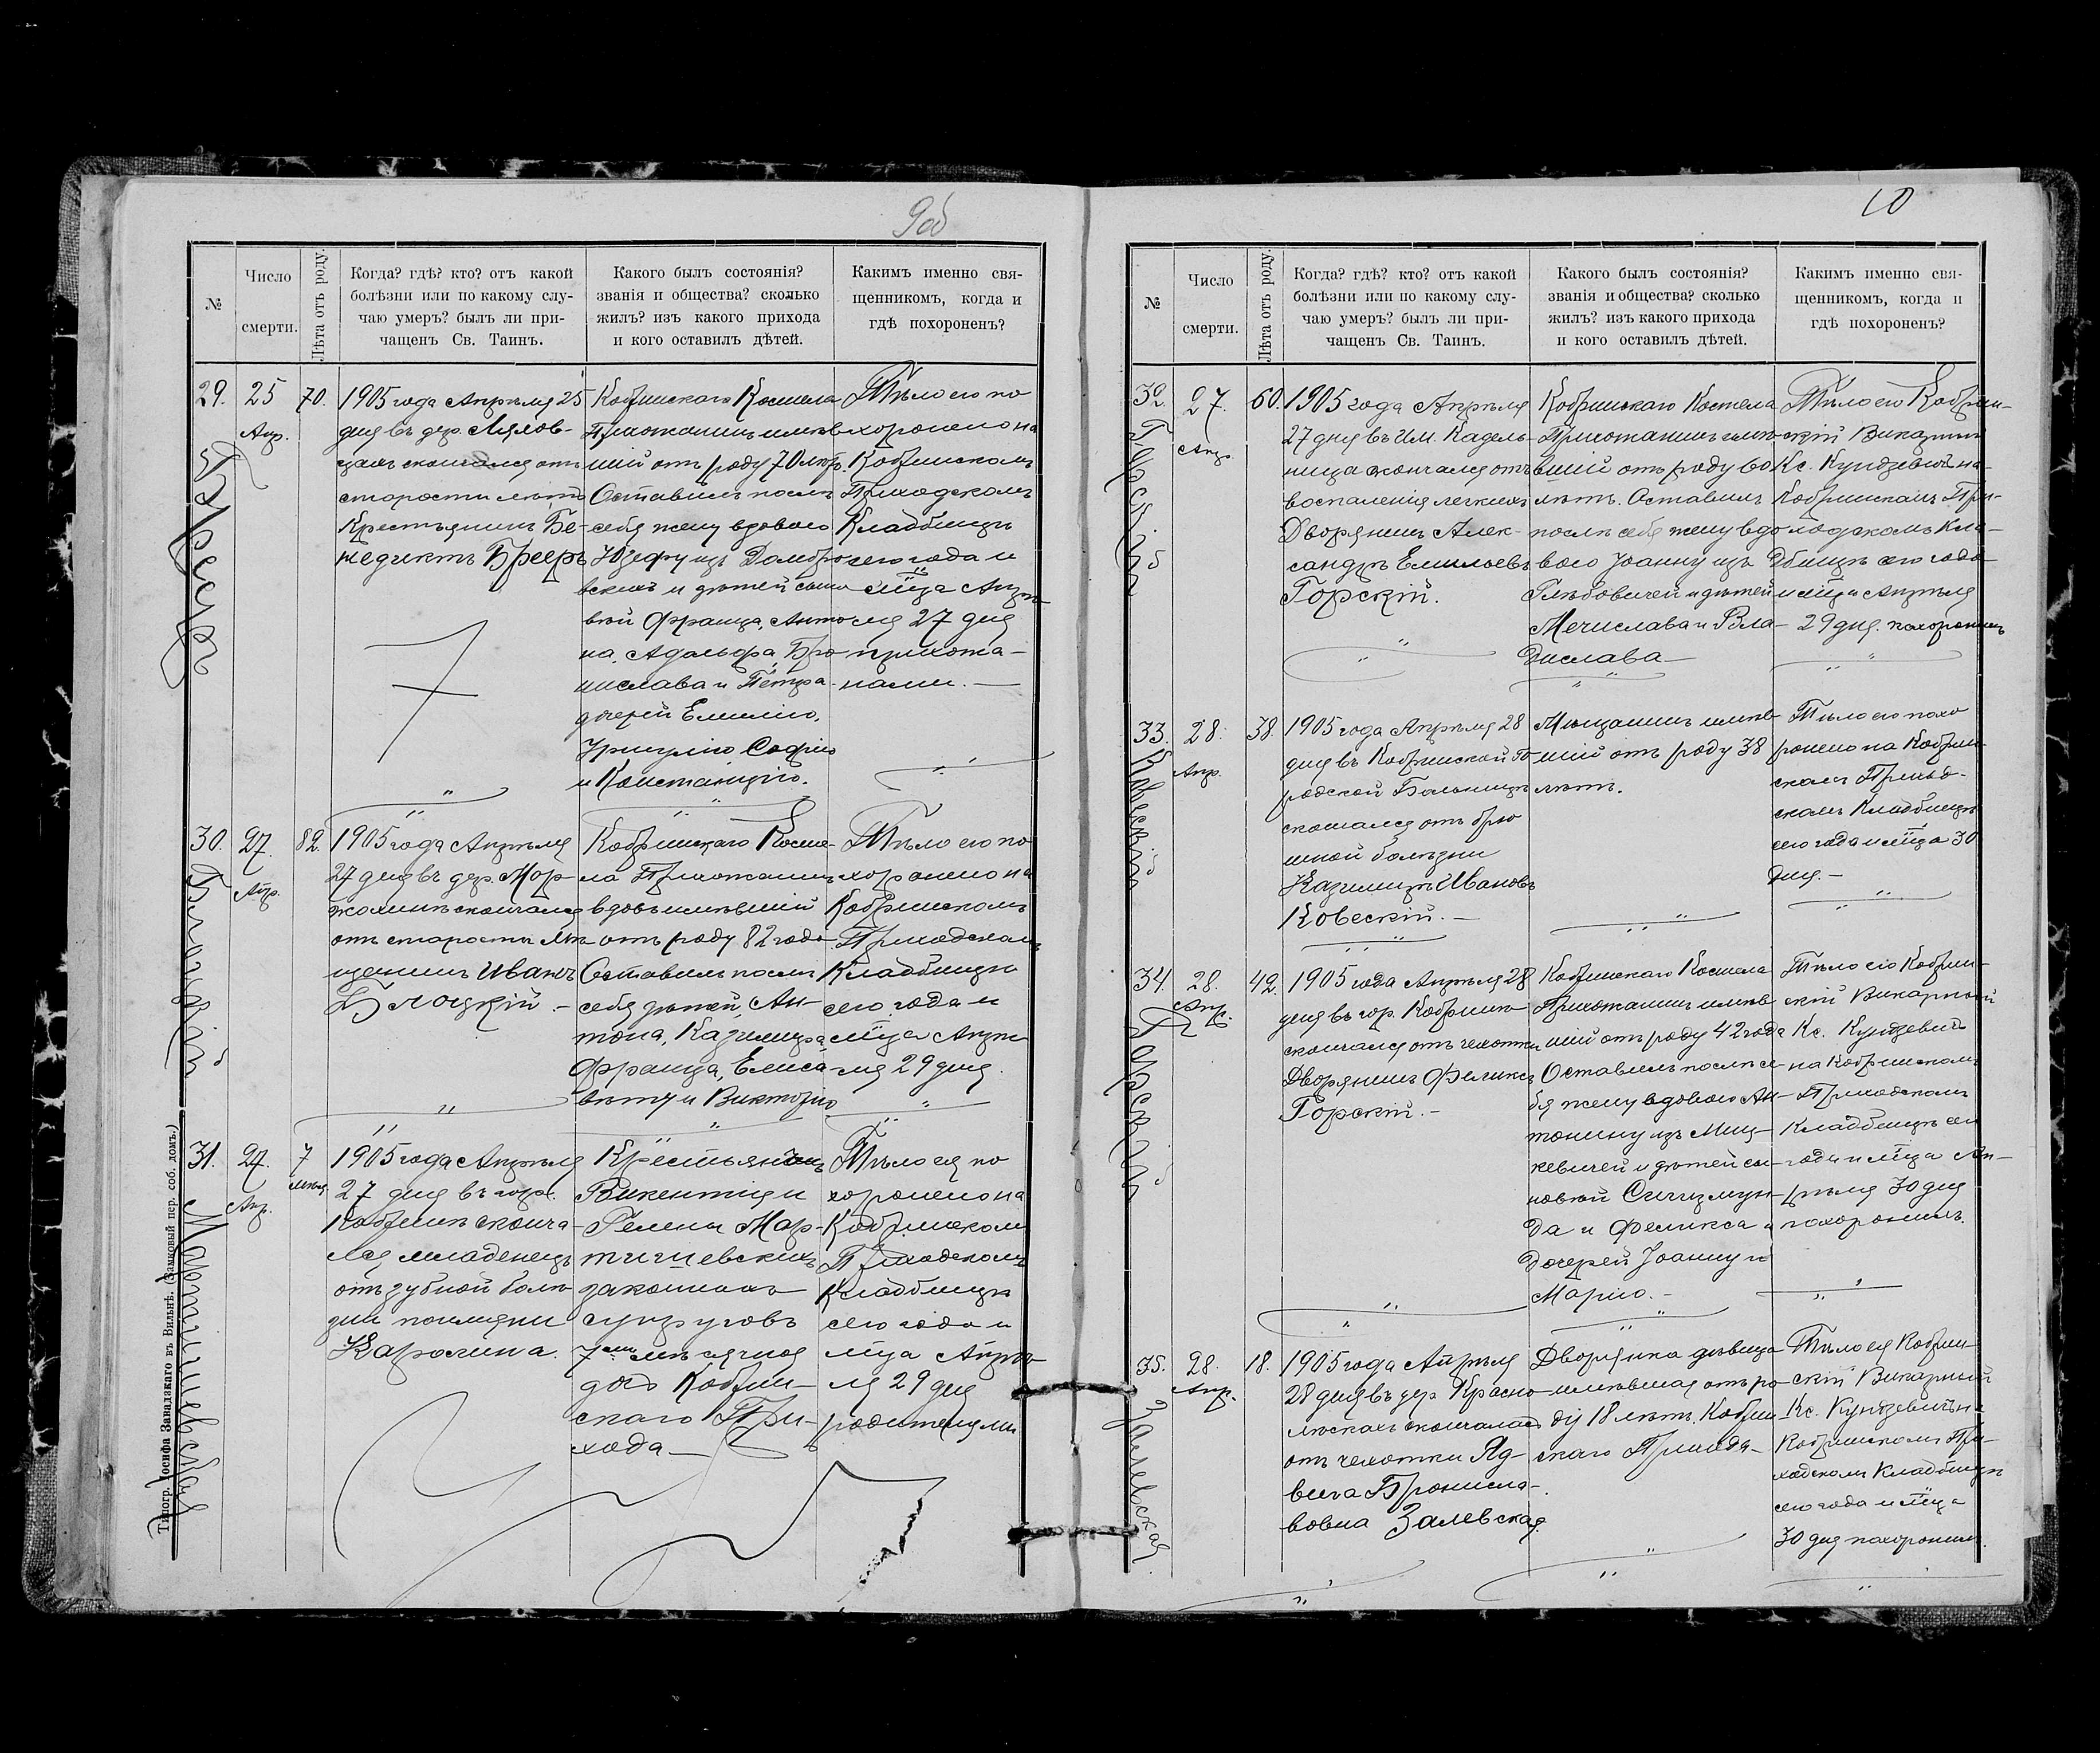 9об
№
Число
смерти.
Лѣта отъ роду.
Когда? гдѣ? кто? отъ какой
болѣзни или по какому слу-
чаю умеръ? былъ ли при-
чащенъ Св. Таинъ.
Какого былъ состоянія?
званія и общества? сколько
жилъ? изъ какого прихода
и кого оставилъ дѣтей.
Какимъ именно свя-
щенникомъ, когда и
гдѣ похороненъ?
29.
25
Апр.
70.
1905 года Апрѣля 25
дня въ дер.
скончался отъ
старости лѣтъ
Крестьянинъ Бе-
недиктъ Брееръ
Кобринскаго Костела
Прихожанинъ имѣв
шій отъ роду 70 лѣтъ.
Оставилъ послѣ
себя жену вдовою
Юзефу изъ Домбро
вскихъ и дѣтей сыно
вей Франца, Анто
на, Адольфа, Бро
нислава и Петра
дочерей Емилію,
Уршулю, Софію
и Констанцію.
Тѣло его по
хоронено на
Кобринскомъ
Приходскомъ
Кладбищѣ
сего года и
мѣца Апрѣ
ля 27 дня
прихожа-
нами.
30.
27.
Апр.
82.
1905 года Апрѣля
27 дня въ дер. Мор-
скончался
отъ старости Мѣ
щанинъ Иванъ
Блоцкій.
Кобринскаго Косте-
ла Прихожанинъ
вдовъ имѣвшій
отъ роду 82 года
Оставилъ послѣ
себя дѣтей, Ан-
тона, Казимира
Франца, Елиса-
вету и Викторію
Тѣло его по
хоронено на
Кобринскомъ
Приходскомъ
Кладбищѣ
сего года и
мѣца Апрѣ
ля 29 дня.
31.
27.
Апр.
7
мѣсяц.
1905 года Апрѣля
27 дня въ гор.
Кобринѣ сконча-
лся младенецъ
отъ зубной болѣ
зни по имени
Каролина.
Крестьянъ
Викентія и
Гелены Мар-
тишевскихъ
законныхъ
супруговъ
7ми мѣсячная
дочь Кобрин-
скаго При-
хода
Тѣло ея по
хоронено на
Кобринскомъ
Приходскомъ
Кладбищѣ
сего года и
мѣца Апрѣ-
ля 29 дня
родителями
Брееръ
Блоцкій
Мартишевская
Типогр. Іосифа Завадзкаго въ Вильнѣ. (Замковый пер. соб. домъ.)
10
№
Число
смерти.
Лѣта отъ роду.
Когда? гдѣ? кто? отъ какой
болѣзни или по какому слу-
чаю умеръ? былъ ли при-
чащенъ Св. Таинъ.
Какого былъ состоянія?
званія и общества? сколько
жилъ? изъ какого прихода
и кого оставилъ дѣтей.
Какимъ именно свя-
щенникомъ, когда и
гдѣ похороненъ?
32.
27.
Апр.
60.
1905 года Апрѣля
27 дня въ Им. Кадель-
ница скончался отъ
воспаленія легкихъ
Дворянинъ Алек-
сандръ Емильевъ
Горскій.
Кобринскаго Костела
Прихожанинъ имѣ
вшій отъ роду 60
лѣтъ. Оставилъ
послѣ себя жену вдо
вою Іоанну изъ
Глѣбовичей и дѣтей
Мечислава и Вла-
дислава
Тѣло его Кобрин-
скій Викарный
Кс. Кундзевичъ на
Кобринскомъ При-
ходскомъ Кла-
дбищѣ сего года
и мѣца Апрѣля
29 дня. похоронилъ
33.
28.
Апр.
38.
1905 года Апрѣля 28
дня въ Кобринской Го
родской Больницѣ
скончался отъ брю
шной болѣзни
Казимиръ Ивановъ
Ковескій.
Мѣщанинъ имѣв-
шій отъ роду 38
лѣтъ.
Тѣло его похо
ронено на Кобрин-
скомъ Приход-
скомъ Кладбищѣ
сего года и мѣца 30
дня.
34.
28.
Апр.
42.
1905 года Апрѣля 28
дня въ гор. Кобринѣ
скончался отъ чахотки
Дворянинъ Феликсъ
Горскій.
Кобринскаго Костела
Прихожанинъ имѣв-
шій отъ роду 42 года
Оставилъ послѣ се-
бя жену вдовою Ан-
тонину изъ Миц-
кевичей и дѣтей сы-
новей Сигизмун-
да и Феликса и
дочерей Іоанну и
Марію.
Тѣло его Кобрин-
скій Викарный
Кс. Кундзевичъ
на Кобринскомъ
Приходскомъ
Кладбищѣ сего
года и мѣца Ап-
рѣля 30 дня
похоронилъ.
35.
28.
Апр.
18.
1905 года Апрѣля
28 дня въ дер. Красно-
скончалась
отъ чахотки Яд-
вига Брониcла-
вовна Залевская.
Дворянка дѣвица
имѣвшая отъ ро-
ду 18 лѣтъ. Кобрин
скаго Прихода
Тѣло ея Кобрин-
скій Викарный
Кс. Кундзевичъ на
Кобринскомъ При-
ходскомъ Кладбищѣ
сего года и мѣца
30 дня похоронилъ.
Горскій.
Ковескій
Горскій
Залевская.